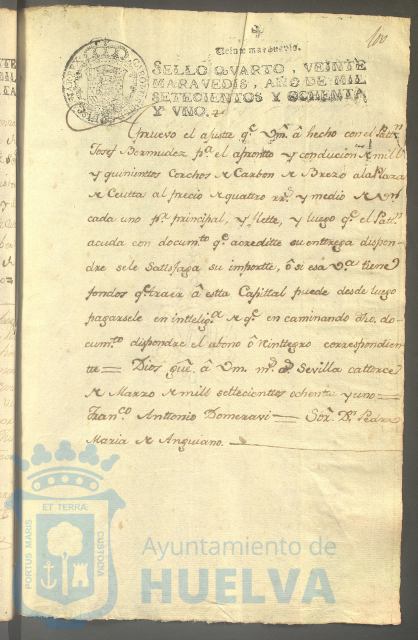 100
Veinte maravedis.
SELLO QVARTO, VEINTE
MARAVEDIS, AÑO DE MIL
SETECIENTOS Y OCHENTA
Y VNO.
Apruevo el ajuste qe. Vm. â hecho con el Patn.
Josef Bermudez pa. el apronto y conducion de mill
y quinienttos Cerchos de Carbon de Brezo ala Plaza
de Ceutta al precio de quattro rrs. y medio de Vn.
cada uno pr. principal, y flette, y luego qe. el Patn.
acuda con documto. qe. acreditte su entrega dispon-
dre se le Sattisfaga su importte, ô si esa Va. tiene
fondos qe. traer â estta Capittal puede desde luego
pagarsele en intteliga. de qe. en caminando dho. do-
cumto. dispondre el abono ô Reinttegro correspondien-
tte = Dios gue. â Vm. ms. as. Sevilla cattorce
de Marzo de mill settecientos ochenta y uno =
Franco. Anttonio Domezavi = Sor. Dn. Pedro
Maria de Anguiano.
PORTUS MARIS
ET TERRÆ
CUSTODIA
Ayuntamiento de
HUELVA